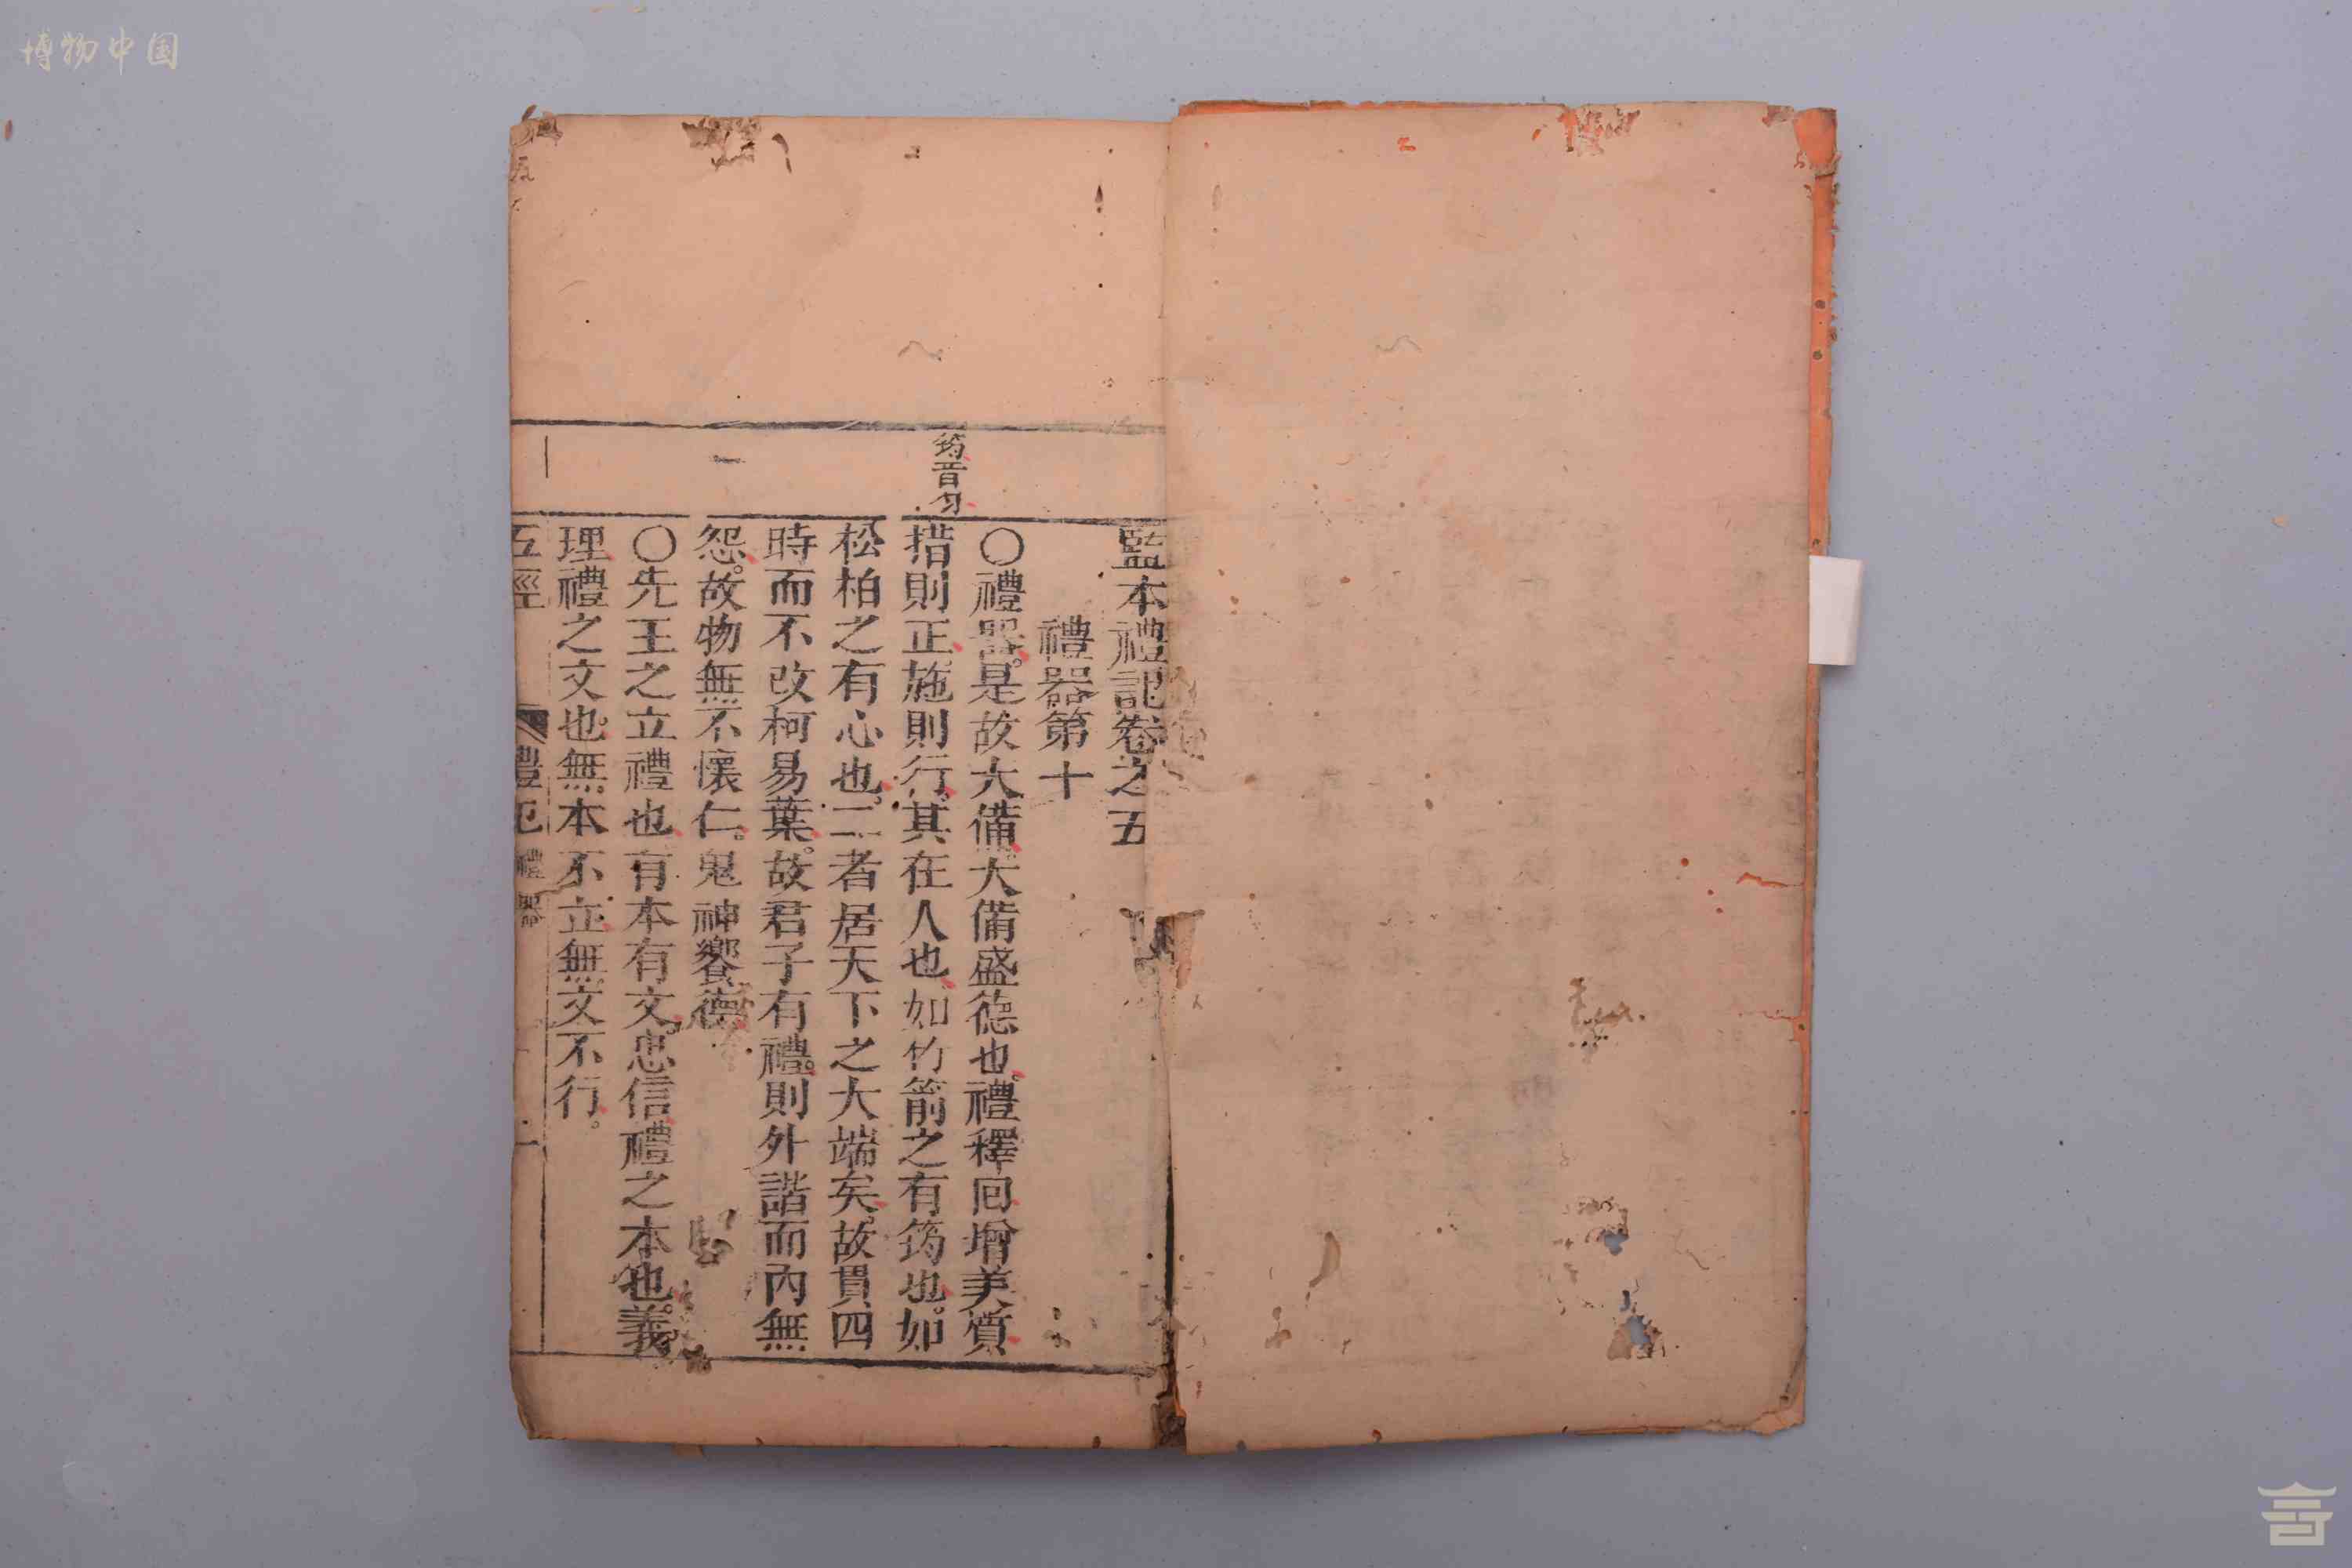 博物中国
監本禮記卷之五
禮器第十
〇禮器是故大備大備盛德也禮釋回增美質
筠音勻
措則正施則行其在人也如竹箭之有筠也如
松柏之有心也二者居天下之大端矣故貫四
時而不改柯易葉故君子有禮則外諧而內無
怨故物無不懷仁鬼神饗德
〇先王之立禮也有本有文忠信禮之本也義
理禮之文也無本不立無文不行。
五經 禮記 禮器 一